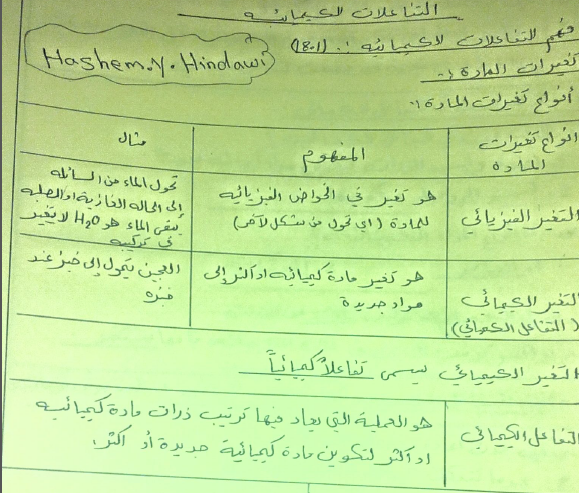 التفاعلات الكيميائيه
فهم التفاعلات الكيميائيه :. (1-8)
Hashem.y.Hindawi
تغيرات المادة :-
أنواع تغيرات المادة :-
انواع تغيرات المادة
المفهوم
مثال
التغير الفيزيائي
هو تغير في الخواص الفيزيائيه
للمادة (اي تحول من شكل لآخر)
تحول الماء من السائله
إلى الحاله الغازية او الصلبه
يبقى الماء هو H2O لا يتغير
في تركيبه
التغير الكيميائي
(التفاعل الكيميائي)
هو تغير مادة كيميائيه او اكثر إلى
مواد جديدة
العجين يتحول إلى خبز عند
خبزه
التغير الكيميائي يسمى تفاعلاً كيميائياً
التفاعل الكيميائي
هو العملية التي يعاد فيها ترتيب ذرات مادة كيميائيه
او اكثر لتكوين مادة كيميائية جديدة أو اكثر.